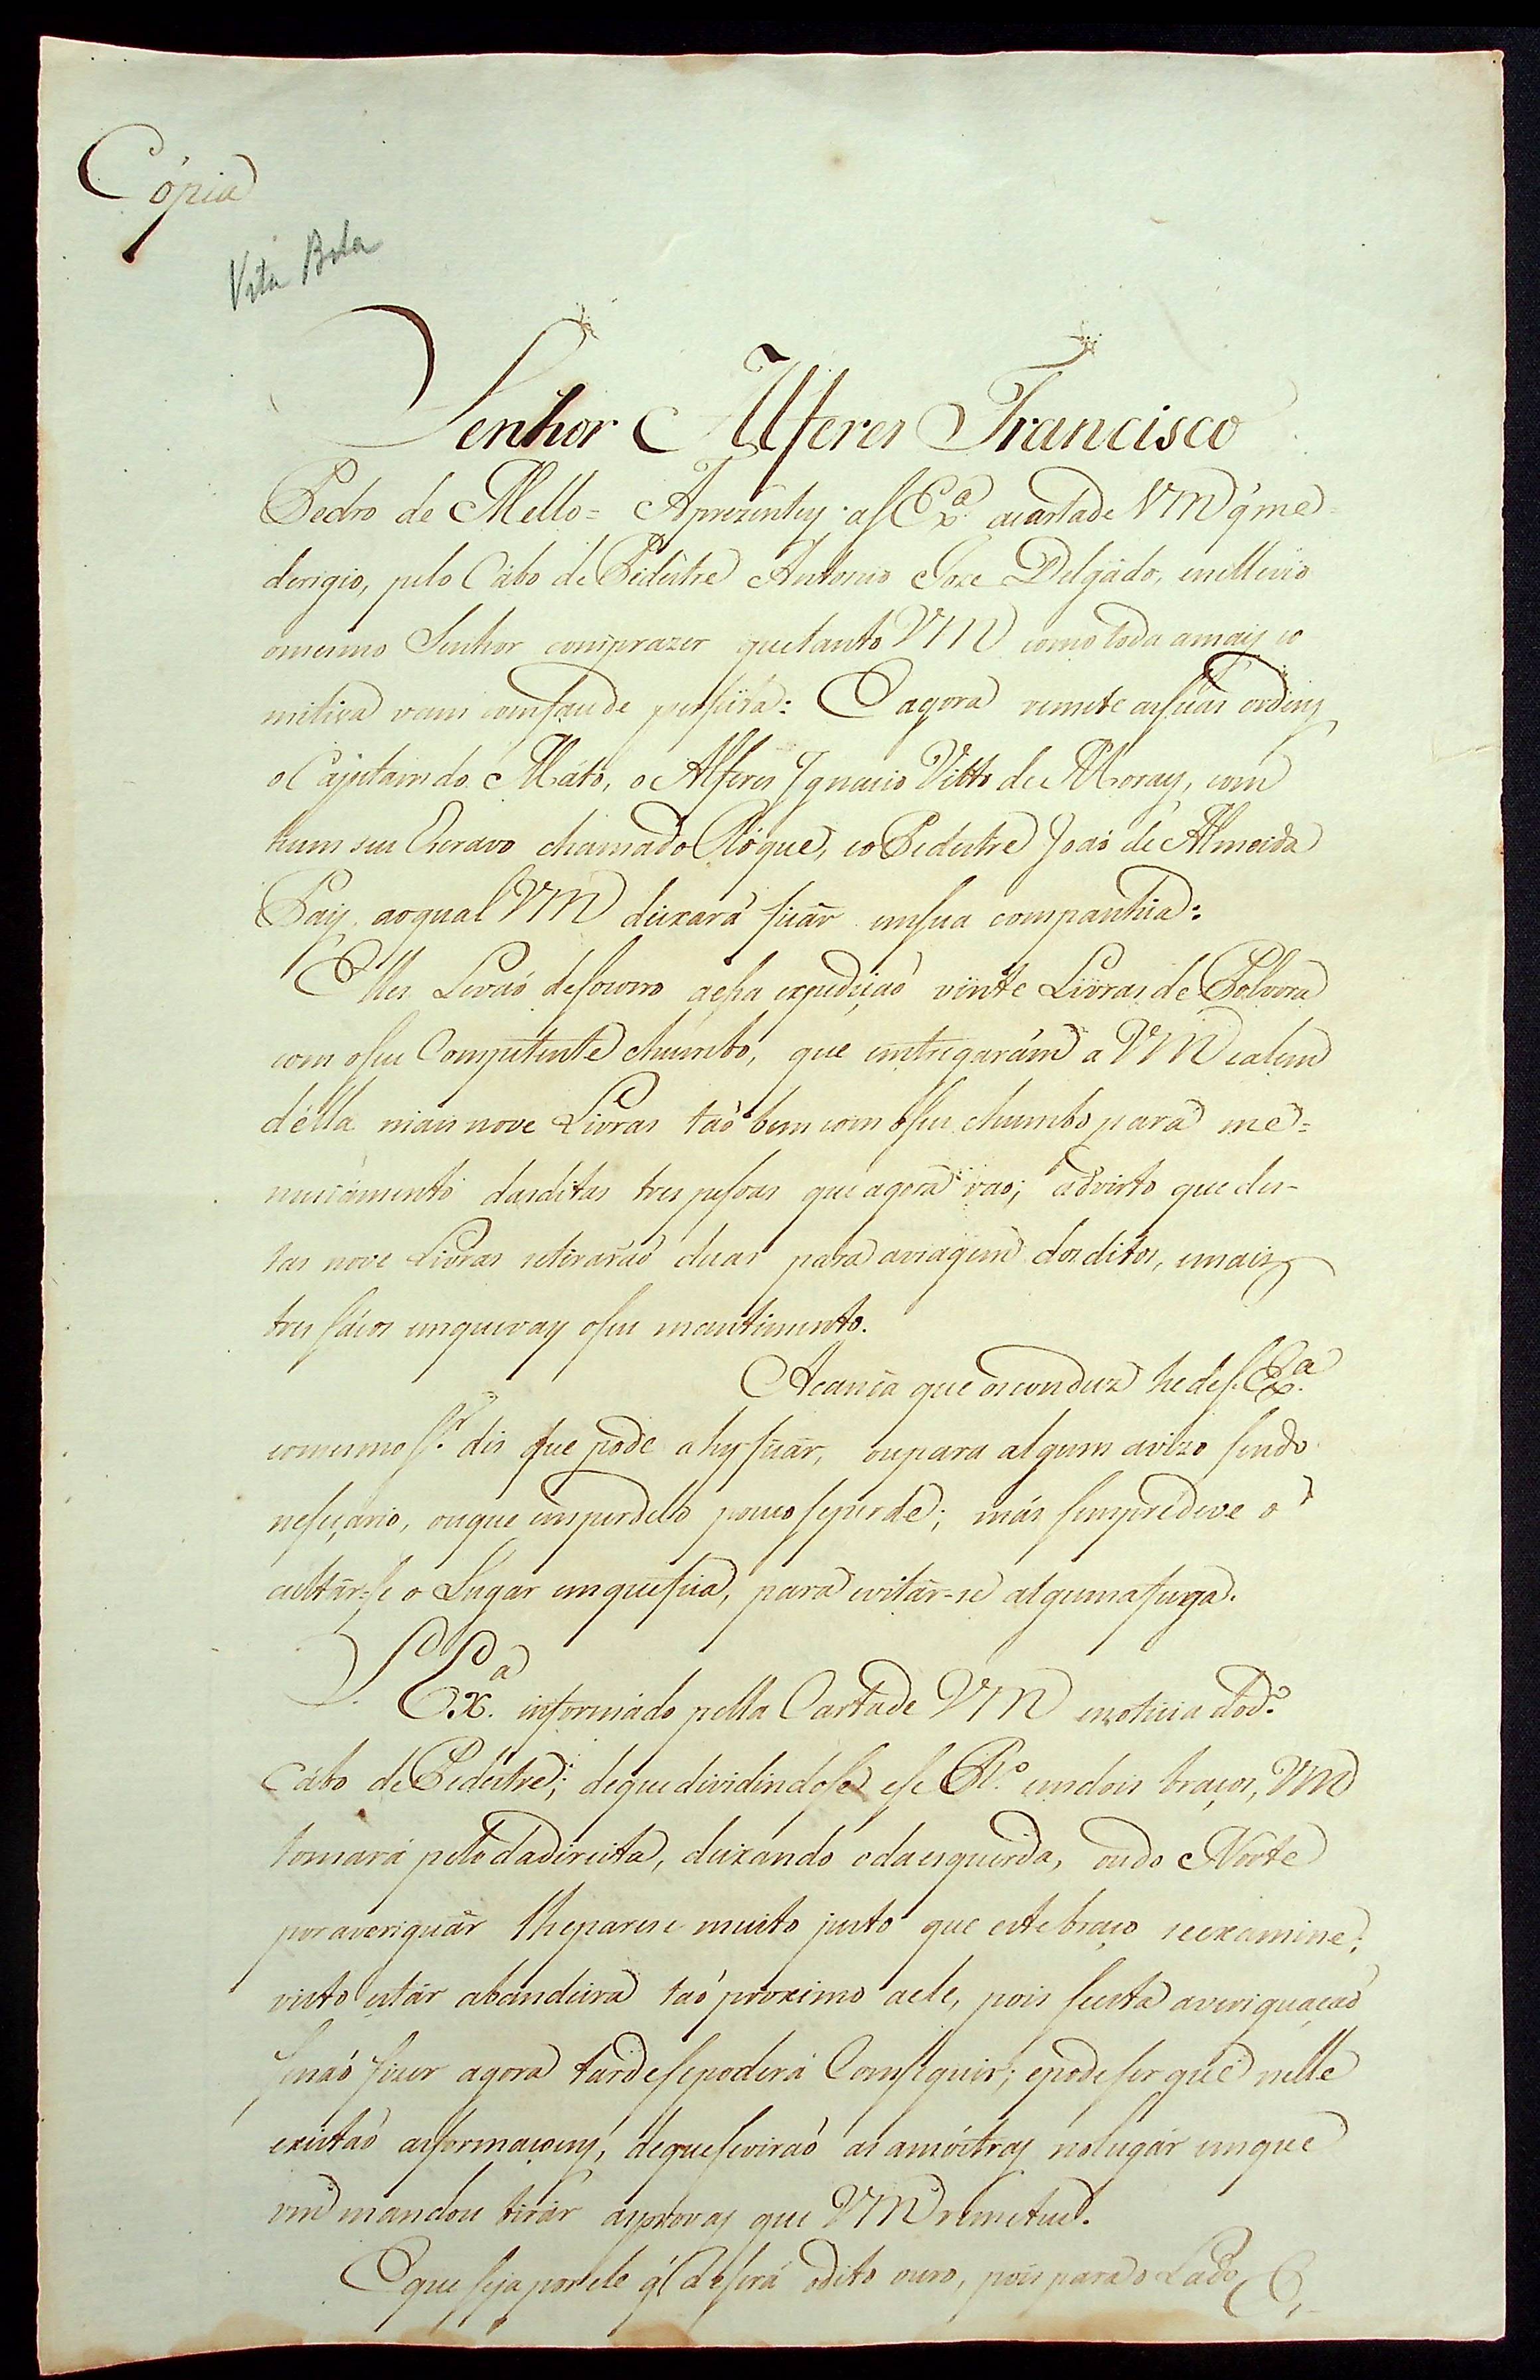 Cópia
Vila Bela
Senhor Alferes Francisco
Pedro de Mello = Aprezentey a S Exª acartade VM q̃ me
derigio, pelo Cabo de Pedestre Antonio Joze Delgádo, enella vio
omesmo Senhor comprazer que tanto VM como toda amais co
mitiva vam comsaude perfeita: E agora remete as suas ordens
o Capitam do Máto, o Alferes Ignacio Vitto de Moray, com
hum seu Escravo chamado Róque, eo Pedestre Joaõ de Almeida
Pay, aoqual VM deixará ficár emsua companhia:
Elles Levaõ desocorro aessa expediçaõ vinte Livras de Polvora
com oseu Competente chumbo, que emtregarám a VM ealem
délla mais nove Livras taõ bem com oseu chumbo para me=
niciamento dasditas tres pesoas que agora vao; advirto que des-
tas nove Livras setiraraõ duas para aviagem dosditos, emais
tres sácos emquevay oseu mantimento.
Acanôa que os conduz he de S. Exª
eomesmo Sr. dis que pode ahy ficár, oupara algum avizo sendo
nesesario, ouque emperdello pouco seperde; más sempre deve o
cultár-se o Lugar emquefica, para evitár-se algumafuga.
S. Exª. informádo pella Carta de VM enoticia dod.º
cábo de Pedestre; deque dividindose ese R.º emdois braços, VM
tomará pello dadireita, deixando odaesquerda, oudo Norte
por averiguár lheparese muito justo que estebraço seexamine;
visto estár abandeira taõ proximo aele, pois seesta averiguaçaõ
senaõ fizer agora tardesepoderá Comseguir; epodeser que nelle
existaõ asformaçoens, dequeseviraõ as amóstras nolugár emque
vm mandou tirár asprovas que VM remeteu.
E que seja por ele q̃ deserá odito ouro, pois para o Lado E,